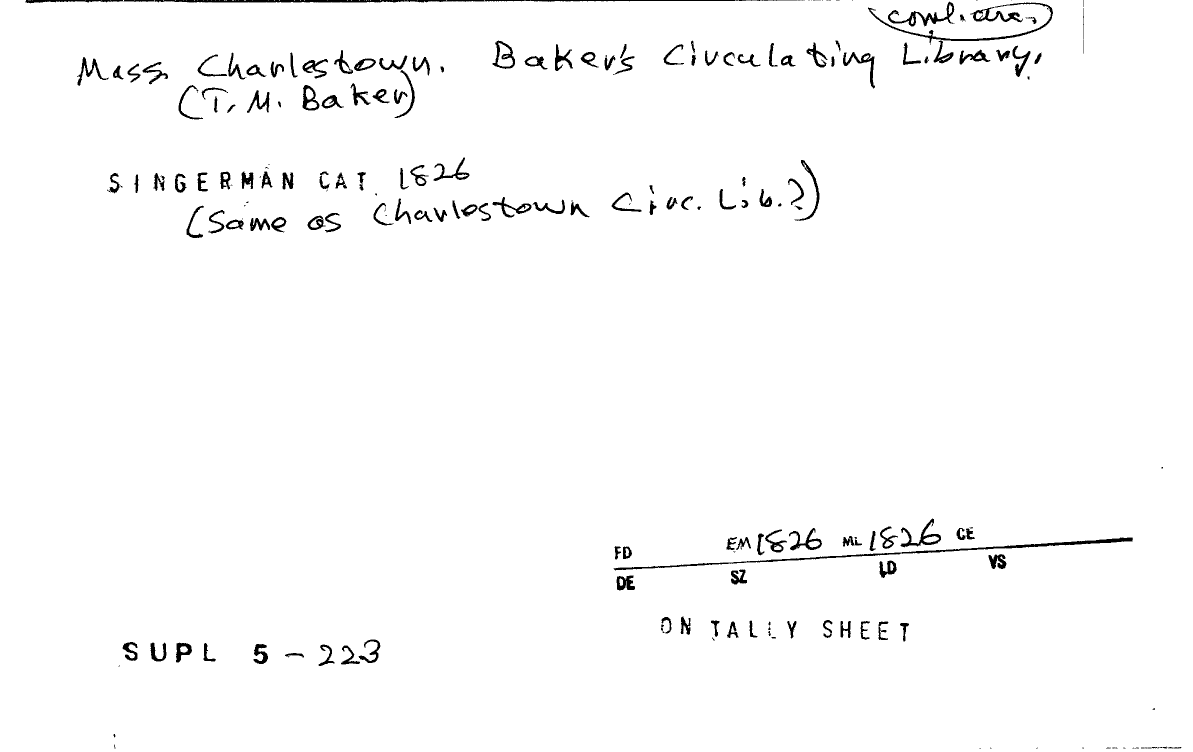 coml. circ.
Mass. Charlestown. Baker's Circulating Library.
(T. M. Baker)
SINGERMAN CAT. 1826
(Same as Charlestown Circ. Lib.?)
FD EM 1826 ML 1826 CE
DE SZ LD VS
ON TALLY SHEET
SUPL 5 - 223